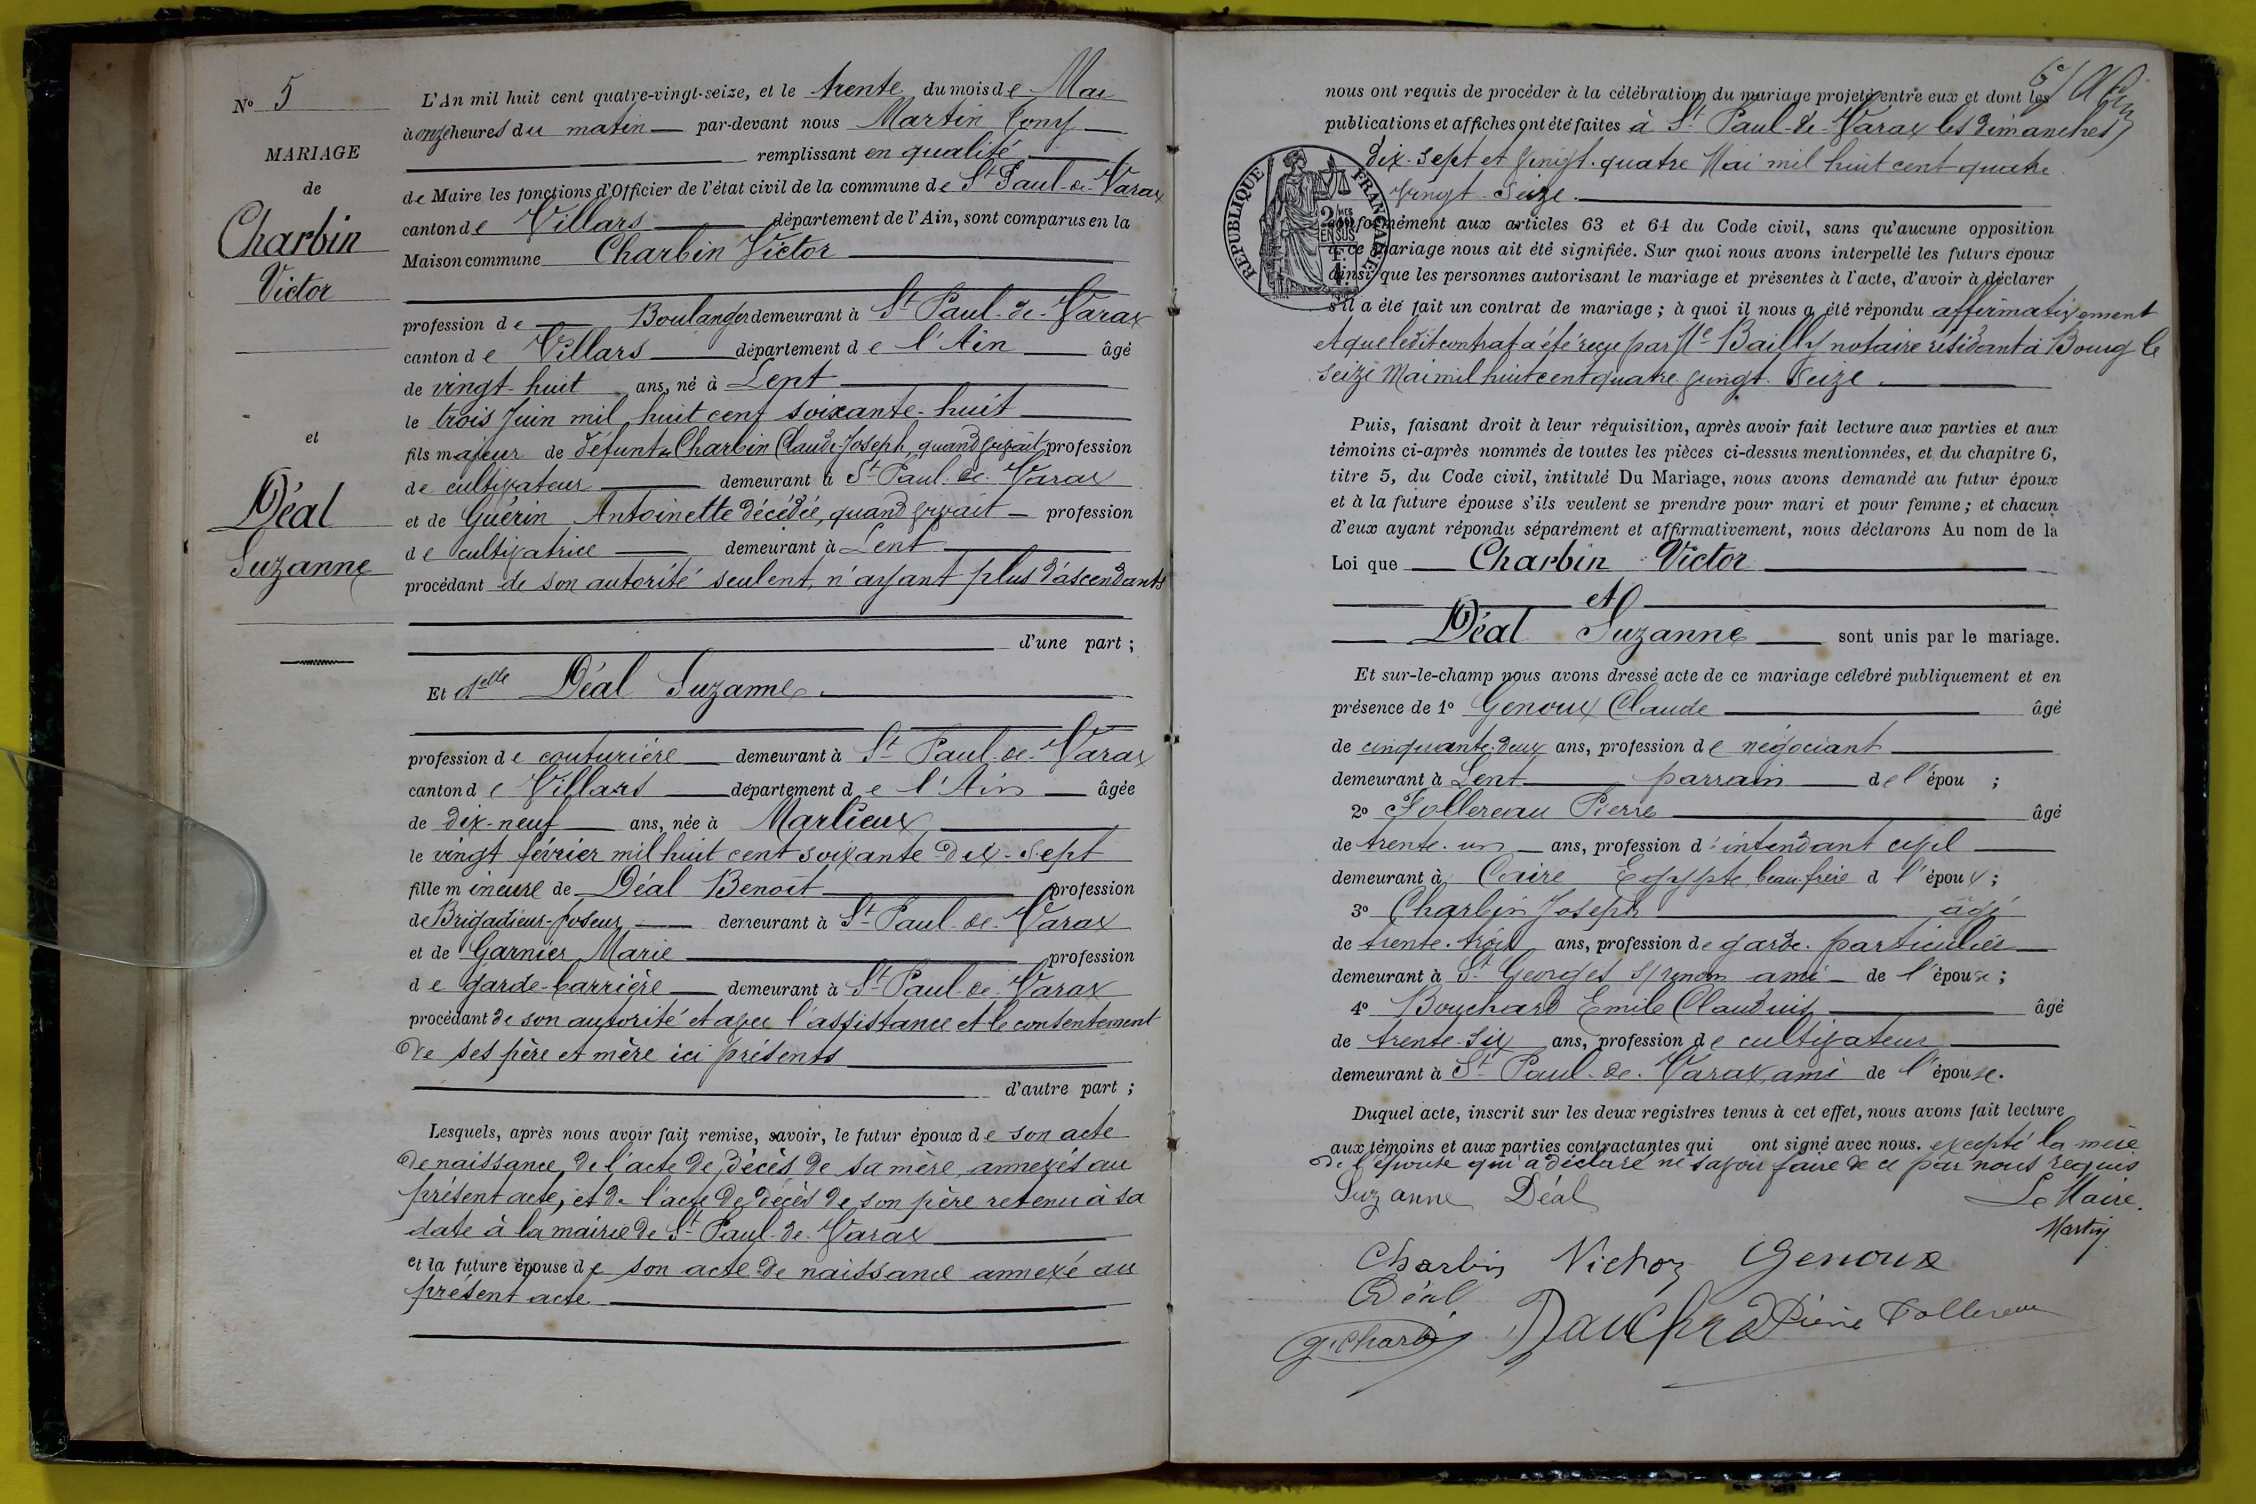 N° 5
MARIAGE
de
Charbin
Victor
et
Déal
Suzanne
L'An mil huit cent quatre-vingt-seize, et le trente du mois de Mai
à onze heures du matin par-devant nous Martin Tony
remplissant en qualité
de Maire les fonctions d'Officier de l'état civil de la commune de St Paul-de-Varax
canton de Villars département de l'Ain, sont comparus en la
Maison commune Charbin Victor
profession de Boulanger demeurant à St Paul-de-Varax
canton de Villars département de l'Ain âgé
de vingt-huit ans, né à Lent
le trois Juin mil huit cent soixante-huit
fils majeur de défunt Charbin Claude-Joseph, quand vivait, profession
de cultivateur demeurant à St Paul-de-Varax
et de Guérin Antoinette décédée, quand vivait profession
de cultivatrice demeurant à Lent
procédant de son autorité seulent, n'ayant plus d'ascendants
d'une part ;
Et delle Déal Suzanne
profession de couturière demeurant à St Paul-de-Varax
canton de Villars département de l'Ain âgée
de dix-neuf ans, née à Marlieux
le vingt février mil huit cent soixante-dix-sept
fille mineure de Déal Benoît profession
de Brigadier-poseur demeurant à St Paul-de-Varax
et de Garnier Marie profession
de garde-barrière demeurant à St Paul-de-Varax
procédant de son autorité et avec l'assistance et le consentement
de ses père et mère ici présents
d'autre part ;
Lesquels, après nous avoir fait remise, savoir, le futur époux de son acte
de naissance, de l'acte de décès de sa mère, annexés au
présent acte, et de l'acte de décès de son père retenu à sa
date à la mairie de St Paul-de-Varax
et la future épouse de son acte de naissance annexé au
présent acte
6e
nous ont requis de procéder à la célébration du mariage projeté entre eux et dont les
publications et affiches ont été faites à St Paul-de-Varax les dimanches
dix-sept et vingt-quatre Mai mil huit cent quatre
vingt-seize.
RÉPUBLIQUE FRANÇAISE
2 MES
EN SUS
conformément aux articles 63 et 64 du Code civil, sans qu'aucune opposition
à ce mariage nous ait été signifiée. Sur quoi nous avons interpellé les futurs époux
ainsi que les personnes autorisant le mariage et présentes à l'acte, d'avoir à déclarer
s'il a été fait un contrat de mariage ; à quoi il nous a été répondu affirmativement
et que ledit contrat a été reçu par Me Bailly notaire résidant à Bourg le
seize Mai mil huit cent quatre vingt-seize.
Puis, faisant droit à leur réquisition, après avoir fait lecture aux parties et aux
témoins ci-après nommés de toutes les pièces ci-dessus mentionnées, et du chapitre 6,
titre 5, du Code civil, intitulé Du Mariage, nous avons demandé au futur époux
et à la future épouse s'ils veulent se prendre pour mari et pour femme ; et chacun
d'eux ayant répondu séparément et affirmativement, nous déclarons Au nom de la
Loi que Charbin Victor
et
Déal Suzanne sont unis par le mariage.
Et sur-le-champ nous avons dressé acte de ce mariage célébré publiquement et en
présence de 1° Genoux Claude âgé
de cinquante-deux ans, profession de négociant
demeurant à Lent parrain de l'épou ;
2° Follereau Pierre âgé
de trente-un ans, profession d'intendant civil
demeurant à Caire Egypte, beau-frère d l'époux ;
3° Charbin Joseph âgé
de trente-trois ans, profession de garde-particulier
demeurant à St Georges s/renom ami de l'épouse ;
4° Bouchard Emile Claudius âgé
de trente-six ans, profession de cultivateur
demeurant à St Paul-de-Varax, ami de l'épouse.
Duquel acte, inscrit sur les deux registres tenus à cet effet, nous avons fait lecture
aux témoins et aux parties contractantes qui ont signé avec nous. excepté la mère
de l'épouse qui a déclaré ne savoir faire de ce par nous requis
Suzanne Déal Le Maire.
Martin
Charbin Victor Genoux
Déal
Charbin Bouchard Pierre Follereau